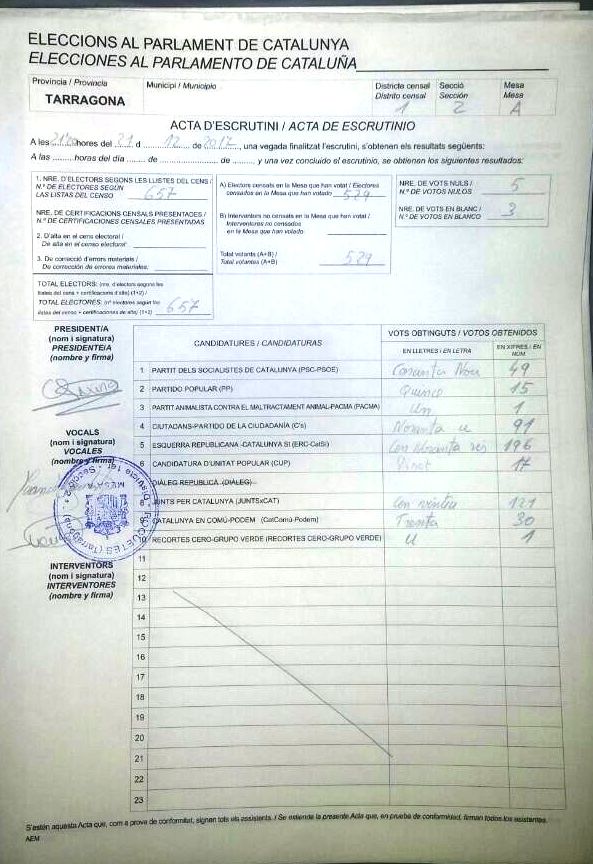 ELECCIONS AL PARLAMENT DE CATALUNYA
ELECCIONES AL PARLAMENTO DE CATALUÑA
Provincia / Provincia
TARRAGONA
Municipi / Municipio
Districte censal
Distrito censal
1
Secció
Sección
2
Mesa
Mesa
A
ACTA D'ESCRUTINI / ACTA DE ESCRUTINIO
A les hores del 21 d 12 de 2017, una vegada finalitzat l'escrutini, s'obtenen els resultats següents:
A las ......... horas del día ...... de ............... de ........, y una vez concluido el escrutinio, se obtienen los siguientes resultados:
1. NRE. D'ELECTORS SEGONS LES LLISTES DEL CENS /
N.º DE ELECTORES SEGÚN
LAS LISTAS DEL CENSO 657
NRE. DE CERTIFICACIONS CENSALS PRESENTADES /
N.º DE CERTIFICACIONES CENSALES PRESENTADAS
2. D'alta en el cens electoral /
De alta en el censo electoral
3. De correcció d'errors materials /
De corrección de errores materiales:
TOTAL ELECTORS: (nre. d'electors segons les
llistes del cens + certificacions d'alta) (1+2) /
TOTAL ELECTORES: (nº electores según las
listas del censo + certificaciones de alta) (1+2) 657
A) Electors censats en la Mesa que han votat / Electores
censados en la Mesa que han votado 529
B) Interventors no censats en la Mesa que han votat /
Interventores no censados
en la Mesa que han votado
Total votants (A+B) /
Total votantes (A+B) 529
NRE. DE VOTS NULS /
N.º DE VOTOS NULOS 5
NRE. DE VOTS EN BLANC /
N.º DE VOTOS EN BLANCO 3
PRESIDENT/A
(nom i signatura)
PRESIDENTE/A
(nombre y firma)
VOCALS
(nom i signatura)
VOCALES
(nombre y firma)
INTERVENTORS
(nom i signatura)
INTERVENTORES
(nombre y firma)
CANDIDATURES / CANDIDATURAS
VOTS OBTINGUTS / VOTOS OBTENIDOS
EN LLETRES / EN LETRA
EN XIFRES / EN NÚM
1 PARTIT DELS SOCIALISTES DE CATALUNYA (PSC-PSOE) Nou 49
2 PARTIDO POPULAR (PP) Quince 15
3 PARTIT ANIMALISTA CONTRA EL MALTRACTAMENT ANIMAL-PACMA (PACMA) Un 1
4 CIUTADANS-PARTIDO DE LA CIUDADANÍA (C's) Noranta u 91
5 ESQUERRA REPUBLICANA -CATALUNYA SÍ (ERC-CatSí) 196
6 CANDIDATURA D'UNITAT POPULAR (CUP) 17
DIÀLEG REPUBLICÀ (DIÀLEG)
8 JUNTS PER CATALUNYA (JUNTSxCAT) 121
9 CATALUNYA EN COMÚ-PODEM (CatComú-Podem) Trenta 30
10 RECORTES CERO-GRUPO VERDE (RECORTES CERO-GRUPO VERDE) U 1
11
12
13
14
15
16
17
18
19
20
21
22
23
S'estén aquesta Acta que, com a prova de conformitat, signen tots els assistents. / Se extiende la presente Acta que, en prueba de conformidad, firman todos los asistentes.
AEM